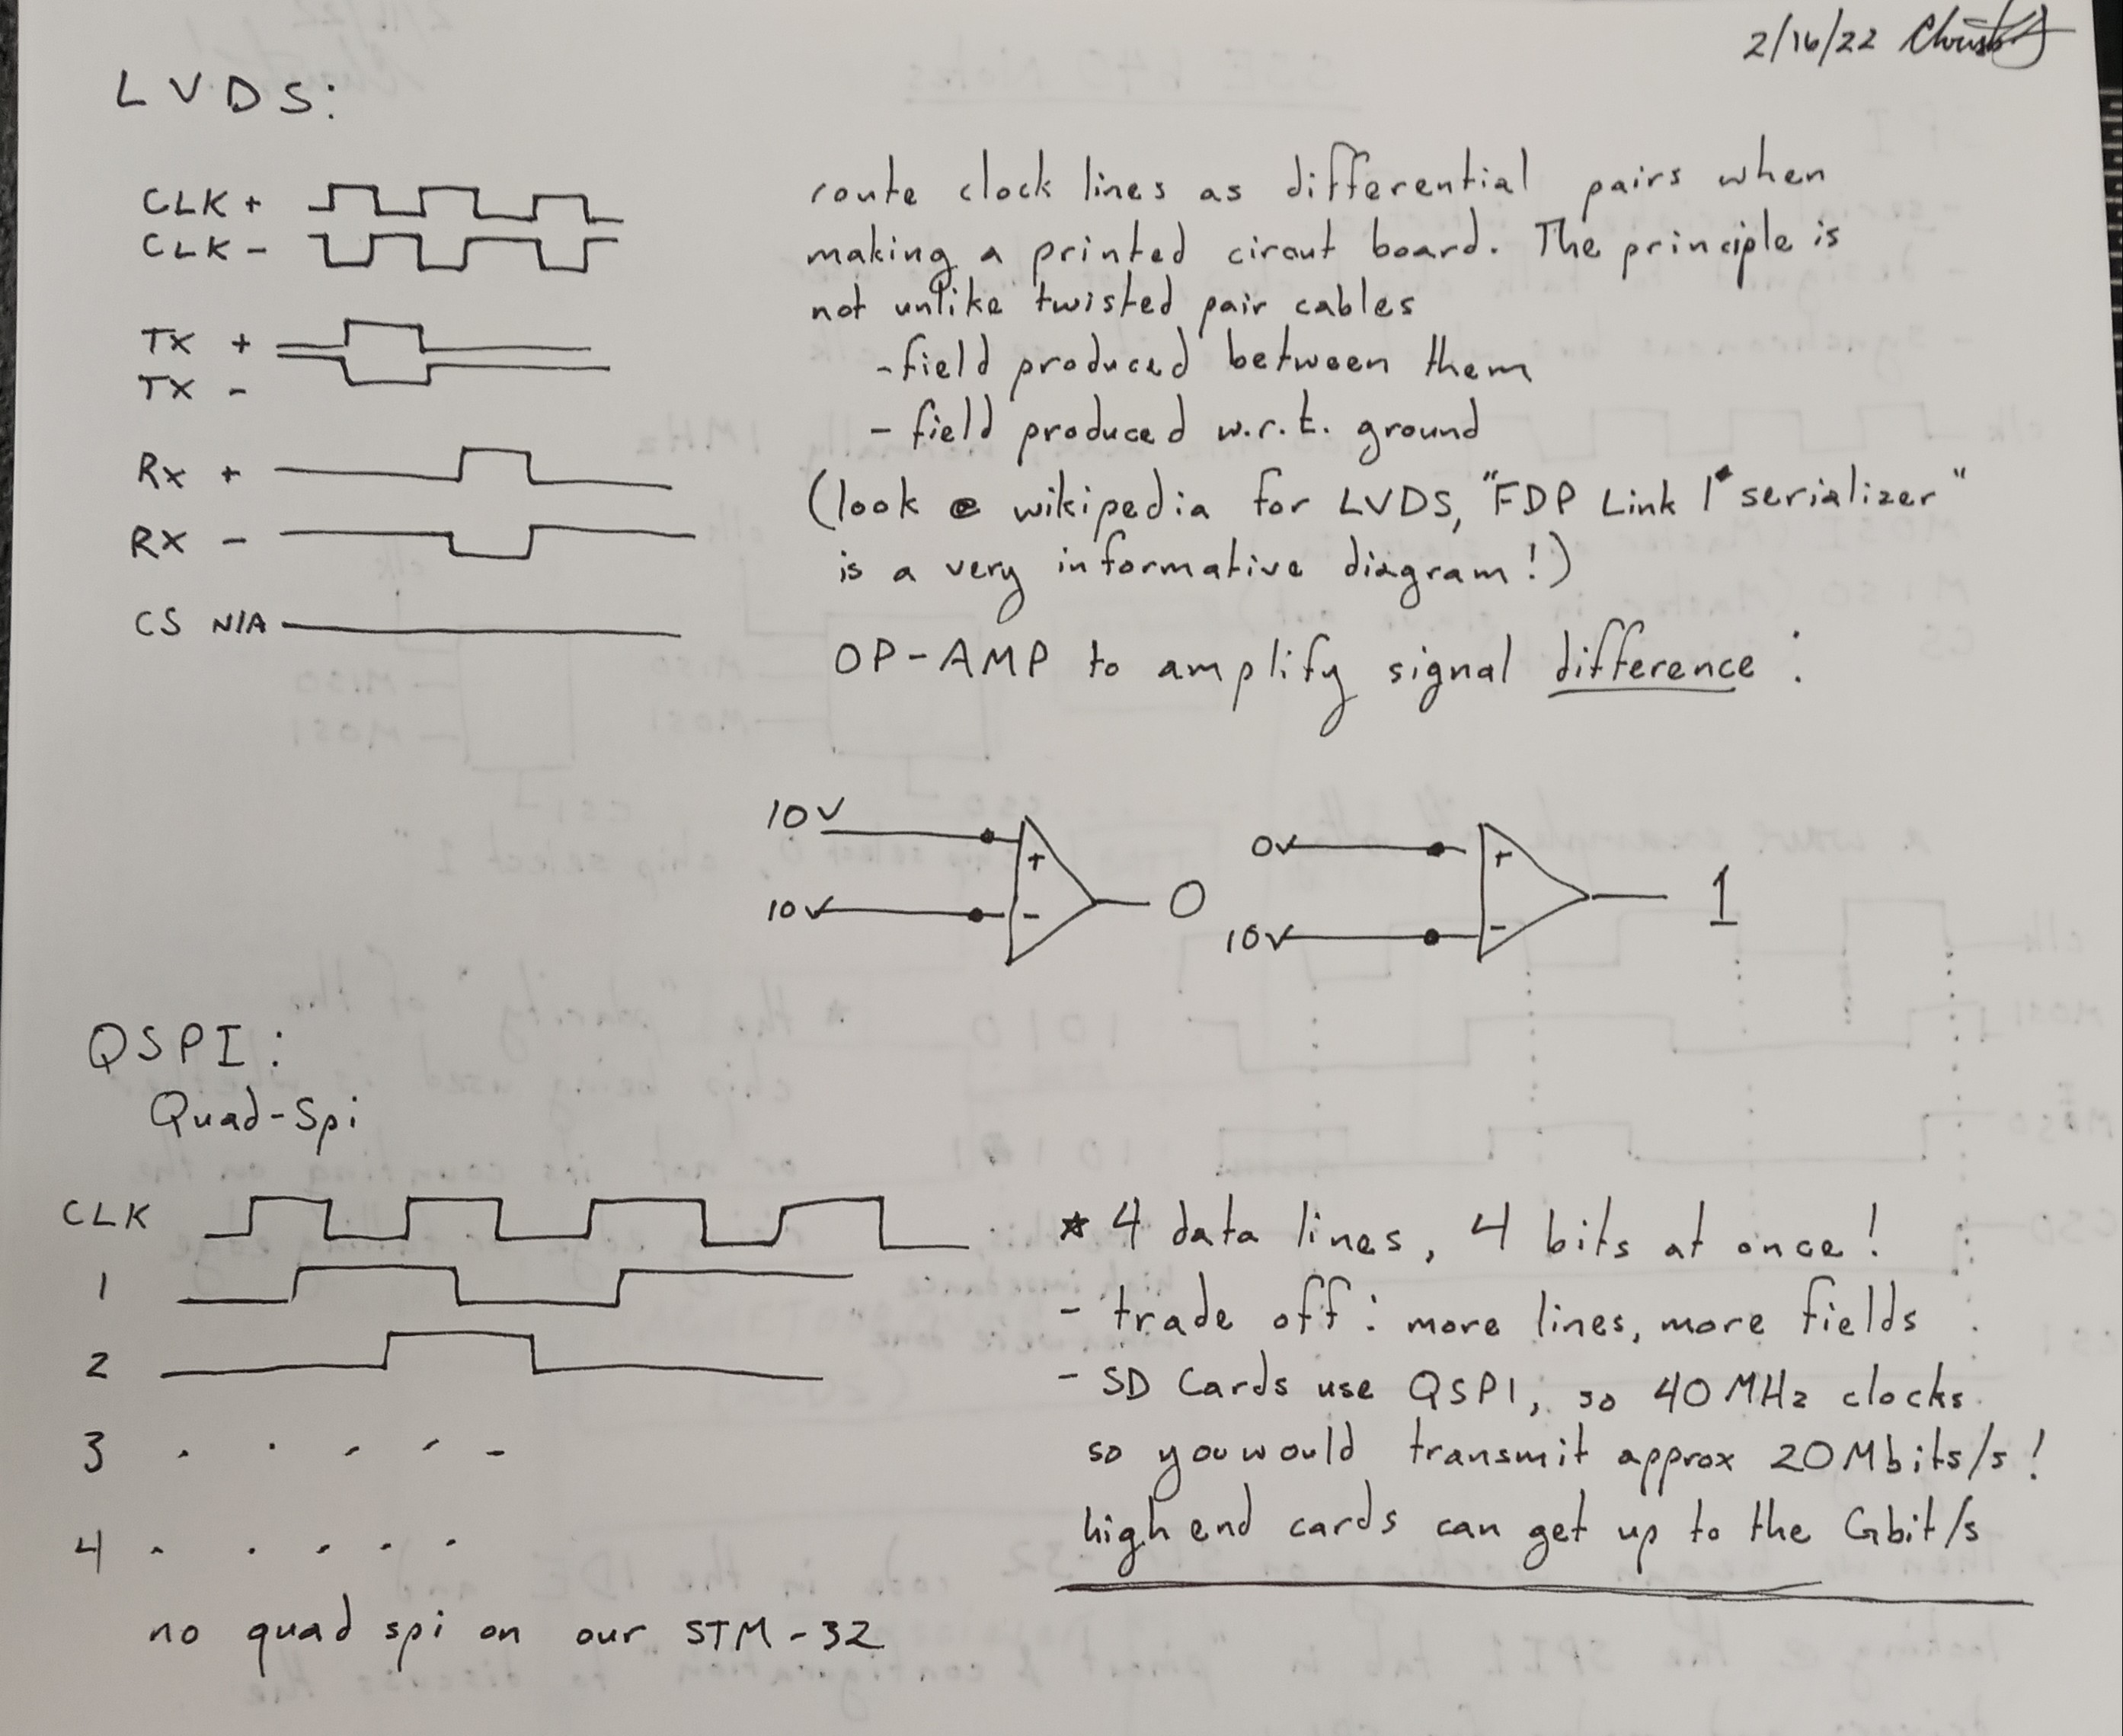 2/16/22
LVDS:
CLK +
CLK -
TX +
TX -
Rx +
RX -
CS N/A
route clock lines as differential pairs when
making a printed circut board. The principle is
not unlike twisted pair cables
-field produced between them
- field produced w.r.t. ground
(look @ wikipedia for LVDS, "FDP Link 1 serializer"
is a very informative diagram!)
OP-AMP to amplify signal difference:
10V
+
10V
-
0
0V
+
10V
-
1
QSPI:
Quad-Spi
CLK
1
2
3
4
no quad spi on our STM-32
* 4 data lines, 4 bits at once!
- trade off: more lines, more fields
- SD Cards use QSPI, so 40MHz clocks
so you would transmit approx 20Mbits/s!
high end cards can get up to the Gbit/s